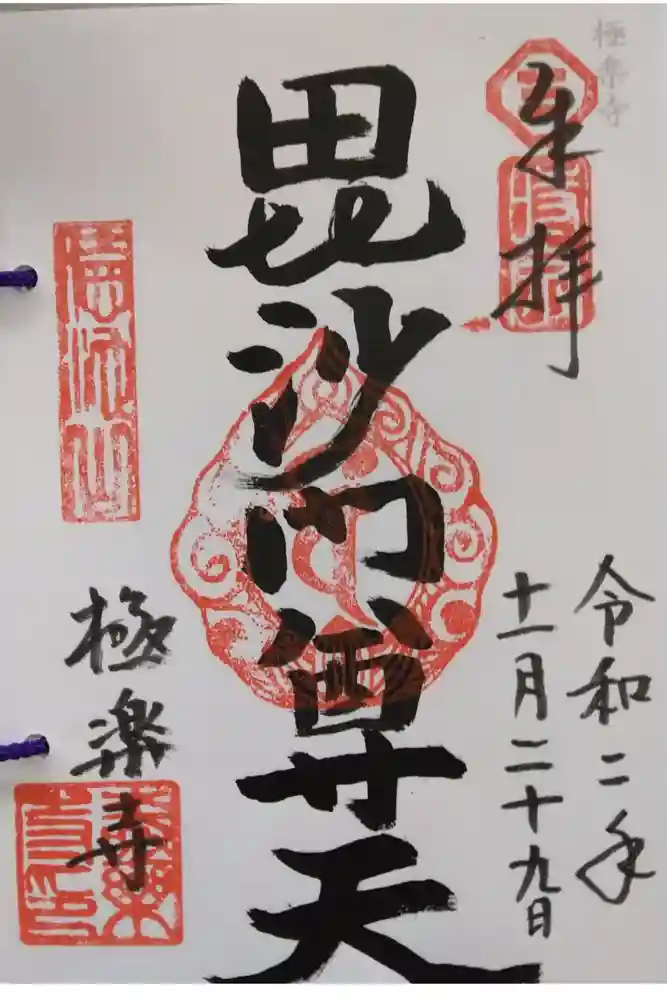 極楽寺
奉拝
令和二年
十一月二十九日
毘沙門尊天
極楽寺